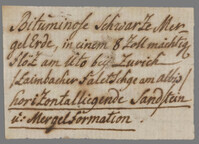 Bituminose Schwartze Mer-
gel Erde, in einem 8 Zoll mächtig
flöz am Uto bey Zurich
am albis/
horizontalliegende Sandstein
u: Mergel formation.